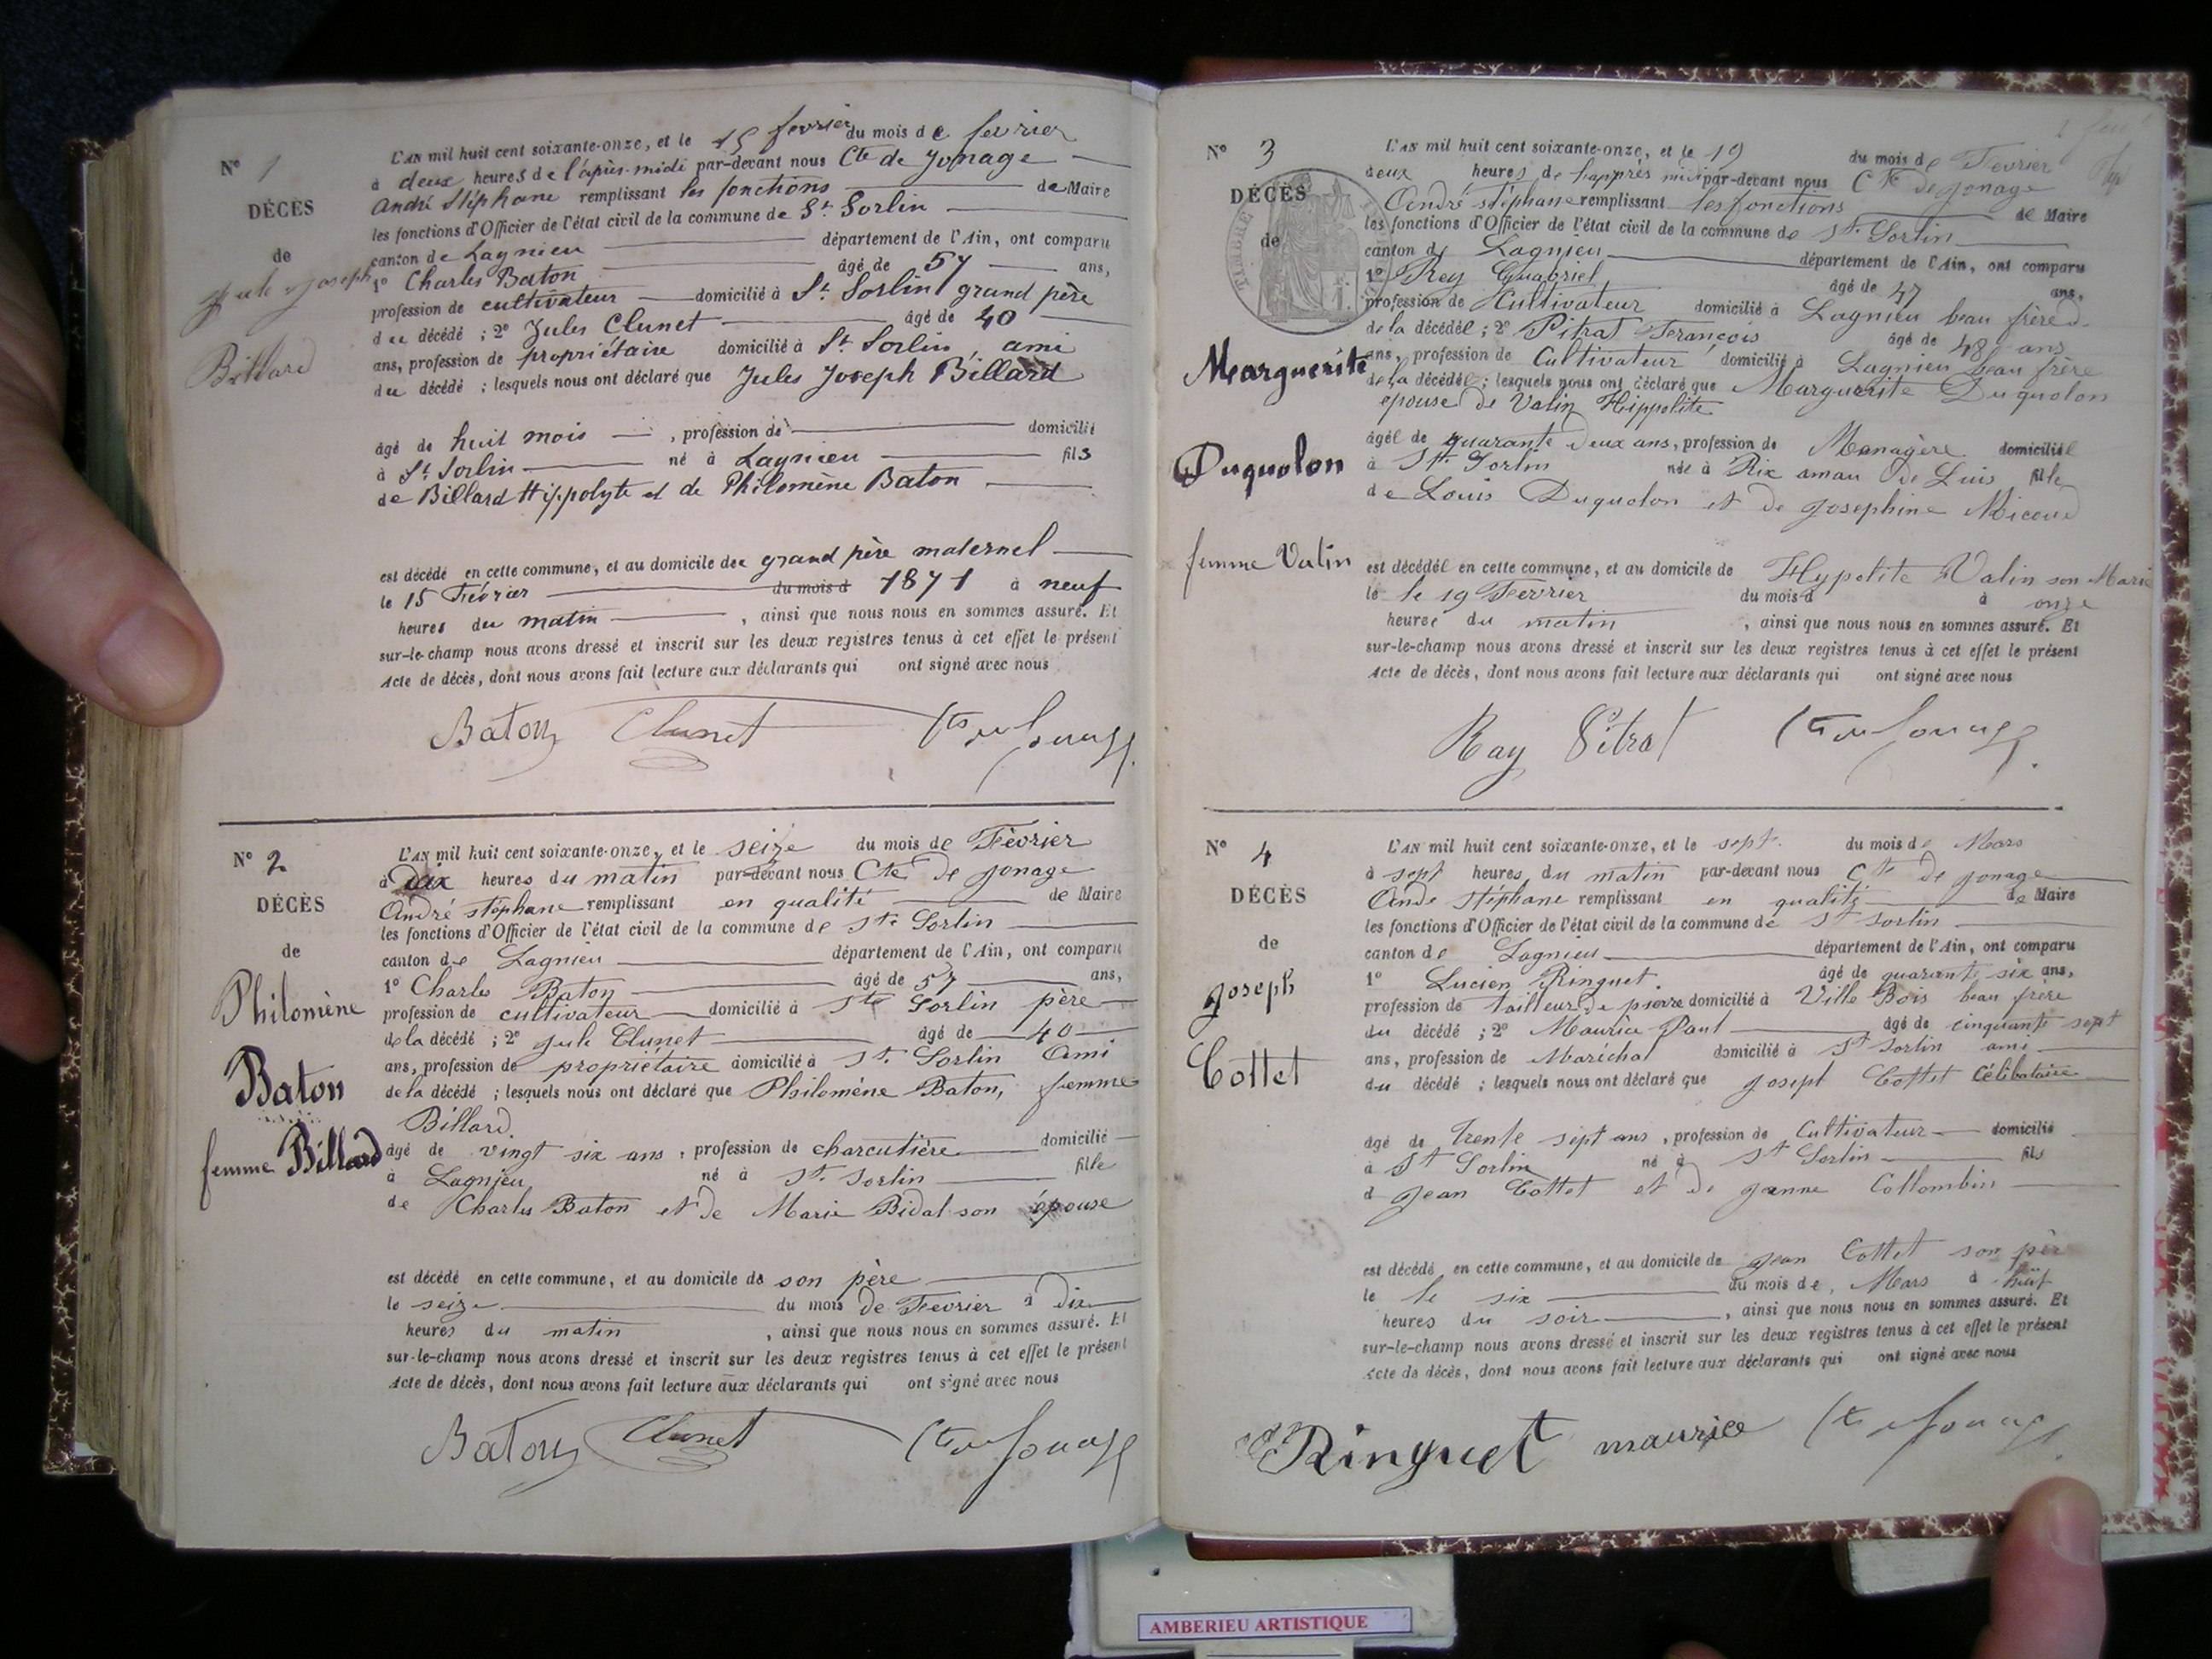 N° 1
DÉCÈS
de
Jule Joseph
Billard
L'AN mil huit cent soixante-onze, et le 15 fevrier du mois de fevrier
à deux heures de l'après-midi par-devant nous Cte de Jonage
André Stéphane remplissant les fonctions de Maire
les fonctions d'Officier de l'état civil de la commune de St. Sorlin
canton de Lagnieu département de l'Ain, ont comparu
1° Charles Baton âgé de 57 ans,
profession de cultivateur domicilié à St. Sorlin grand père
du décédé ; 2° Jules Clunet âgé de 40
ans, profession de propriétaire domicilié à St. Sorlin, ami
du décédé ; lesquels nous ont déclaré que Jules Joseph Billard
âgé de huit mois , profession de domicilié
à St. Sorlin né à Lagnieu fils
de Billard Hippolyte et de Philomène Baton
est décédé en cette commune, et au domicile de grand père maternel
le 15 Février du mois d 1871 à neuf
heures du matin , ainsi que nous nous en sommes assuré. Et
sur-le-champ nous avons dressé et inscrit sur les deux registres tenus à cet effet le présent
Acte de décès, dont nous avons fait lecture aux déclarants qui ont signé avec nous
Baton Clunet Cte de Jonage
N° 2
DÉCÈS
de
Philomène
Baton
femme Billard
L'AN mil huit cent soixante-onze, et le seize du mois de Février
à Dix heures du matin par-devant nous Cte de Jonage
André stéphane remplissant en qualité de Maire
les fonctions d'Officier de l'état civil de la commune de Ste Sorlin
canton de Lagnieu département de l'Ain, ont comparu
1° Charles Baton âgé de 57 ans,
profession de cultivateur domicilié à Ste Sorlin père
de la décédé ; 2° Jule Clunet âgé de 40
ans, profession de propriétaire domicilié à St. Sorlin Ami
de la décédé ; lesquels nous ont déclaré que Philomène Baton, femme
Billard
âgé de vingt six ans , profession de charcutière domicilié
à Lagnieu né à St. Sorlin fille
de Charles Baton et de Marie Bidal son épouse
est décédé en cette commune, et au domicile de son père
le seize du mois de Fevrier à dix
heures du matin , ainsi que nous nous en sommes assuré. Et
sur-le-champ nous avons dressé et inscrit sur les deux registres tenus à cet effet le présent
Acte de décès, dont nous avons fait lecture aux déclarants qui ont signé avec nous
Baton Clunet Cte de Jonage
N° 3
DÉCÈS
de
TIMBRE
Marguerite
Duquolon
femme Valin
L'AN mil huit cent soixante-onze, et le 19 du mois de Fevrier
deux heures de l'apprès midi par-devant nous Cte de Jonage
André stéphane remplissant les fonctions de Maire
les fonctions d'Officier de l'état civil de la commune de St. Sorlin
canton de Lagnieu département de l'Ain, ont comparu
1° Rey Guabriel âgé de 47 ans,
profession de Cultivateur domicilié à Lagnieu beau frère
de la décédée ; 2° Pitrat François âgé de 48 ans
ans, profession de Cultivateur domicilié à Lagnieu beau frère
de la décédée ; lesquels nous ont déclaré que Marguerite Duquolon
epouse de Valin Hippolite
âgée de quarante deux ans, profession de Menagère domiciliée
à St. Sorlin née à Rix aman De Luis fille
de Louis Duquolon et de Josephine Micoud
est décédée en cette commune, et au domicile de Hypolite Valin son Marie
le le 19 Fevrier du mois d à onze
heures du matin , ainsi que nous nous en sommes assuré. Et
sur-le-champ nous avons dressé et inscrit sur les deux registres tenus à cet effet le présent
Acte de décès, dont nous avons fait lecture aux déclarants qui ont signé avec nous
Ray Pitrat Cte de Jonage
N° 4
DÉCÈS
de
Joseph
Cottet
L'AN mil huit cent soixante-onze, et le sept du mois de Mars
à sept heures du matin par-devant nous Cte de Jonage
Ande Stéphane remplissant en qualité de Maire
les fonctions d'Officier de l'état civil de la commune de St Sorlin
canton de Lagnieu département de l'Ain, ont comparu
1° Lucien Ringuet. âgé de quarante six ans,
profession de tailleur de pierre domicilié à Ville Bois beau frère
du décédé ; 2° Maurice Paul âgé de cinquante sept
ans, profession de Maréchal domicilié à St Sorlin ami
du décédé ; lesquels nous ont déclaré que Josept Cottet Célibataire
âgé de Trente sept ans , profession de Cultivateur domicilié
à St Sorlin né à St Sorlin fils
d Jean Cottet et de Janne Collombin
est décédé en cette commune, et au domicile de Jean Cottet son pèr
le le six du mois de Mars à huit
heures du soir , ainsi que nous nous en sommes assuré. Et
sur-le-champ nous avons dressé et inscrit sur les deux registres tenus à cet effet le présent
Acte de décès, dont nous avons fait lecture aux déclarants qui ont signé avec nous
Ringuet maurice Cte de Jonage
AMBERIEU ARTISTIQUE